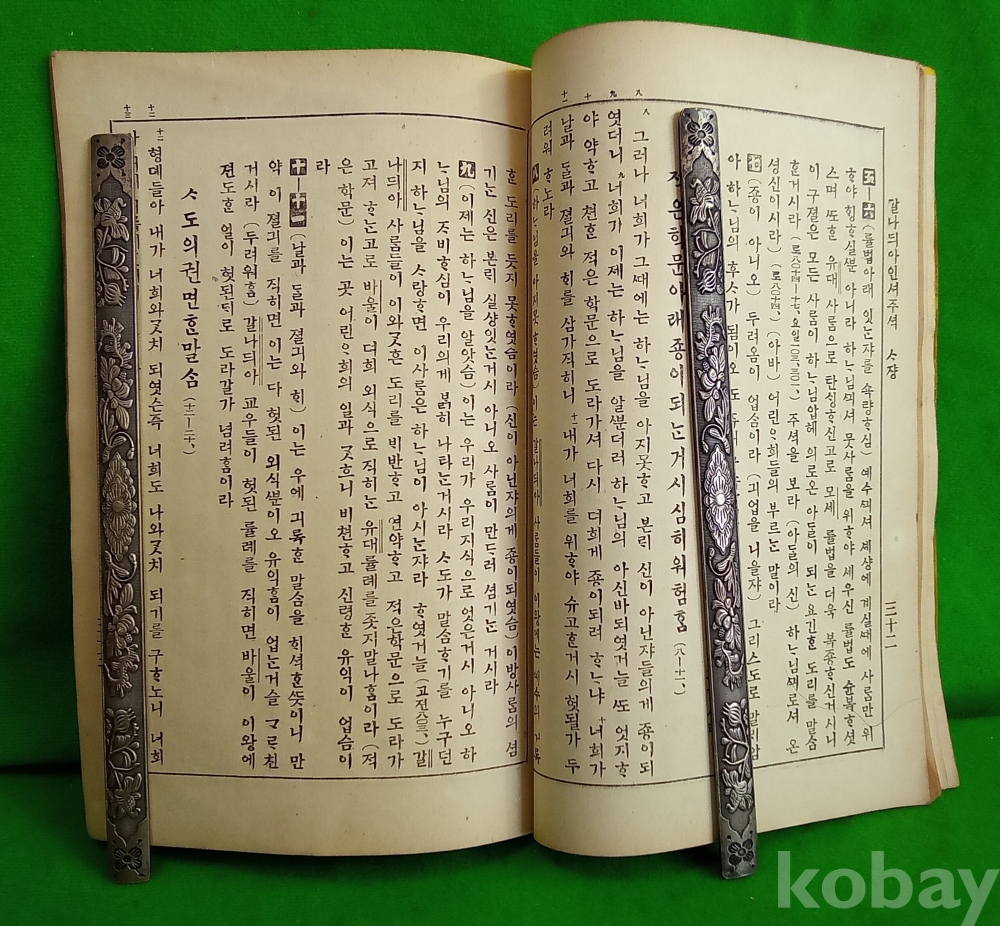 갈나듸아인셔주셕 ᄉ쟝 三十二
五—六 (률법아래 잇ᄂᆞᆫ쟈를 쇽량ᄒᆞ심) 예수ᄭᅴ셔 셰샹에 계실ᄯᅢ에 사ᄅᆞᆷ만 위
ᄒᆞ야 힝ᄒᆞ실분 아니라 하ᄂᆞ님ᄭᅴ셔 뭇사ᄅᆞᆷ을 위ᄒᆞ야 세우신 률법도 슌복ᄒᆞ셧
스며 ᄯᅩᄒᆞᆫ 유대 사ᄅᆞᆷ으로 탄싱ᄒᆞ신고로 모세 률법을 더욱 복죵ᄒᆞ신거시니
이 구졀은 모든 사ᄅᆞᆷ이 하ᄂᆞ님압헤 의로온 아ᄃᆞᆯ이 되ᄂᆞᆫ 요긴ᄒᆞᆫ 도리를 말ᄉᆞᆷ
ᄒᆞᆫ거시라 주셕을 보라 (아ᄃᆞᆯ의 신) 하ᄂᆞ님ᄭᅴ로셔 온
셩신이시라 (아바) 어린ᄋᆞ희들의 부르ᄂᆞᆫ 말이라
七 (죵이 아니오) 두려옴이 업ᄉᆞᆷ이라 (긔업을 니을쟈) 그리스도로 말ᄆᆡ암
아 하ᄂᆞ님의 후ᄉᆞ가 됨이오
죵이 되ᄂᆞᆫ거시 심히 위험ᄒᆞᆷ (八—十一)
八 그러나 너희가 그ᄯᅢ에ᄂᆞᆫ 하ᄂᆞ님을 아지못ᄒᆞ고 본ᄅᆡ 신이 아닌쟈들의게 죵이되
엿더니 九 너희가 이제ᄂᆞᆫ 하ᄂᆞ님을 알분더러 하ᄂᆞ님의 아신바되엿거ᄂᆞᆯ ᄯᅩ 엇지ᄒᆞ
야 약ᄒᆞ고 쳔ᄒᆞᆫ 젹은 학문으로 도라가셔 다시 뎌희게 죵이되려 ᄒᆞᄂᆞ냐 十 너희가
날과 ᄃᆞᆯ과 졀긔와 ᄒᆡ를 삼가직히니 十一 내가 너희를 위ᄒᆞ야 슈고ᄒᆞᆫ거시 헛될가 두
려워 ᄒᆞ노라
ᄒᆞᆫ 도리를 듯지 못ᄒᆞ엿ᄉᆞᆷ이라 (신이 아닌쟈의게 죵이되엿ᄉᆞᆷ) 이방사ᄅᆞᆷ의 셤
기ᄂᆞᆫ 신은 본ᄅᆡ 실샹잇ᄂᆞᆫ거시 아니오 사ᄅᆞᆷ이 만드러 셤기ᄂᆞᆫ 거시라
九 (이제ᄂᆞᆫ 하ᄂᆞ님을 알앗ᄉᆞᆷ) 이ᄂᆞᆫ 우리가 우리지식으로 엇은거시 아니오 하
ᄂᆞ님의 ᄌᆞ비ᄒᆞ심이 우리의게 붉히 나타ᄂᆞᆫ거시라 ᄉᆞ도가 말ᄉᆞᆷᄒᆞ기를 누구던
지 하ᄂᆞ님을 ᄉᆞ랑ᄒᆞ면 이사ᄅᆞᆷ은 하ᄂᆞ님이 아시ᄂᆞᆫ쟈라 ᄒᆞ엿거ᄂᆞᆯ (고젼八〇三、) 갈
나듸아 사ᄅᆞᆷ들이 이와ᄀᆞᆺᄒᆞᆫ 도리를 비반ᄒᆞ고 연약ᄒᆞ고 젹은학문으로 도라가
고져 ᄒᆞᄂᆞᆫ고로 바울이 뎌희 외식으로 직히ᄂᆞᆫ 유대률례를 좃지말나ᄒᆞᆷ이라 (젹
은 학문) 이ᄂᆞᆫ 곳 어린ᄋᆞ희의 일과 ᄀᆞᆺᄒᆞ니 비쳔ᄒᆞ고 신령ᄒᆞᆫ 유익이 업ᄉᆞᆷ이
라
十—十一 (날과 ᄃᆞᆯ과 졀긔와 ᄒᆡ) 이ᄂᆞᆫ 우에 긔록ᄒᆞᆫ 말ᄉᆞᆷ을 ᄒᆡ셕ᄒᆞᆫᄯᅳᆺ이니 만
약 이 졀긔를 직히면 이ᄂᆞᆫ 다 헛된 외식분이오 유익ᄒᆞᆷ이 업ᄂᆞᆫ거슬 ᄀᆞᄅᆞ친
거시라 (두려워ᄒᆞᆷ) 갈나듸아 교우들이 헛된 률례를 직히면 바울이 이왕에
젼도ᄒᆞᆫ 일이 헛된ᄃᆡ로 도라갈가 념려ᄒᆞᆷ이라
ᄉᆞ도의 권면ᄒᆞᆫ 말ᄉᆞᆷ (十二—二十、)
十二 형뎨들아 내가 너희와 ᄀᆞᆺ치 되엿슨즉 너희도 나와 ᄀᆞᆺ치 되기를 구ᄒᆞ노니 너희
kobay